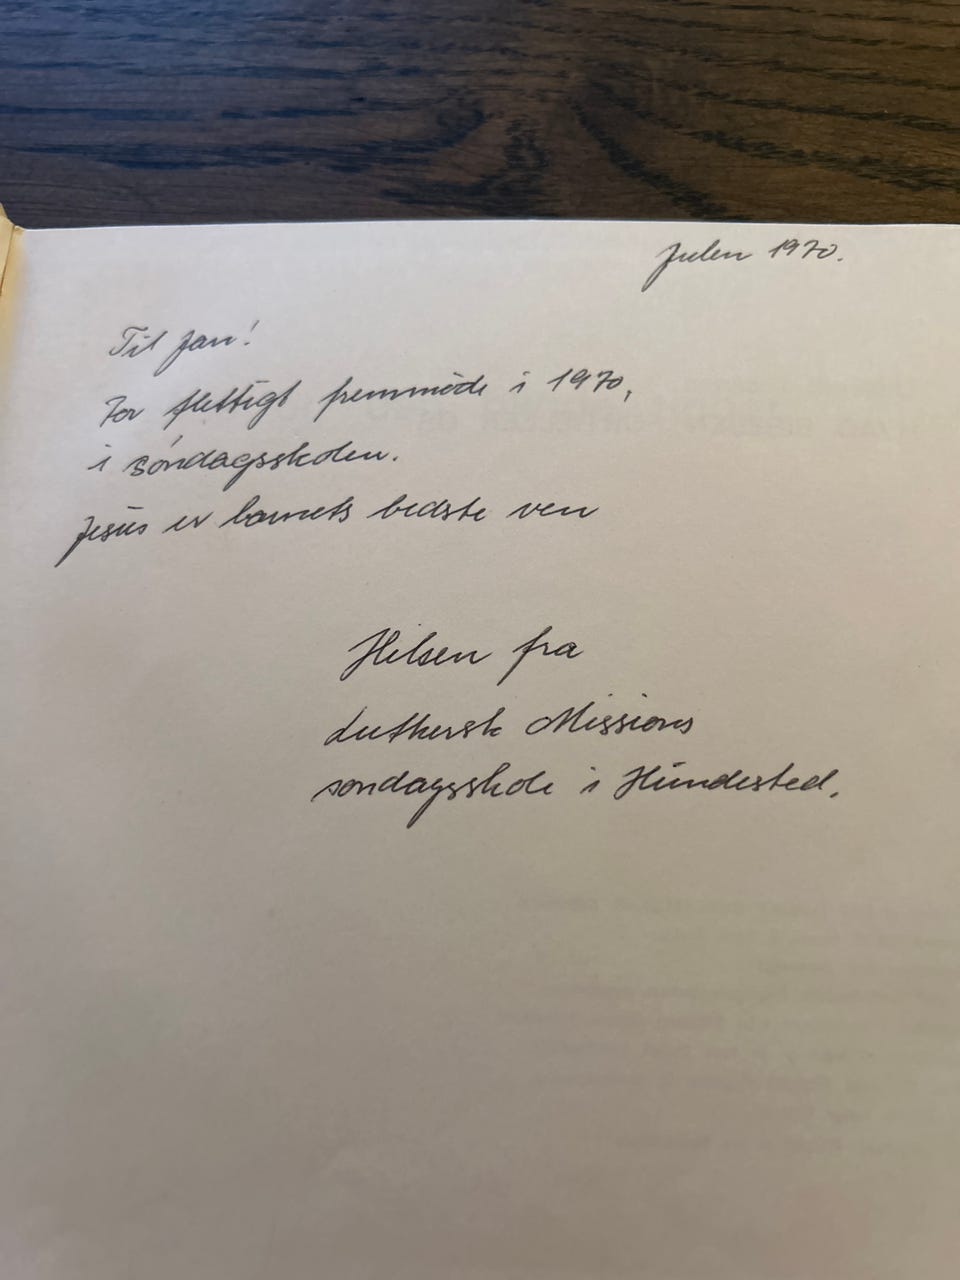 Julen 1970.
Til Jan!
For flittigt fremmøde i 1970,
i søndagsskolen.
Jesus er barnets bedste ven
Hilsen fra
Luthersk Missions
søndagsskole i Hundested.